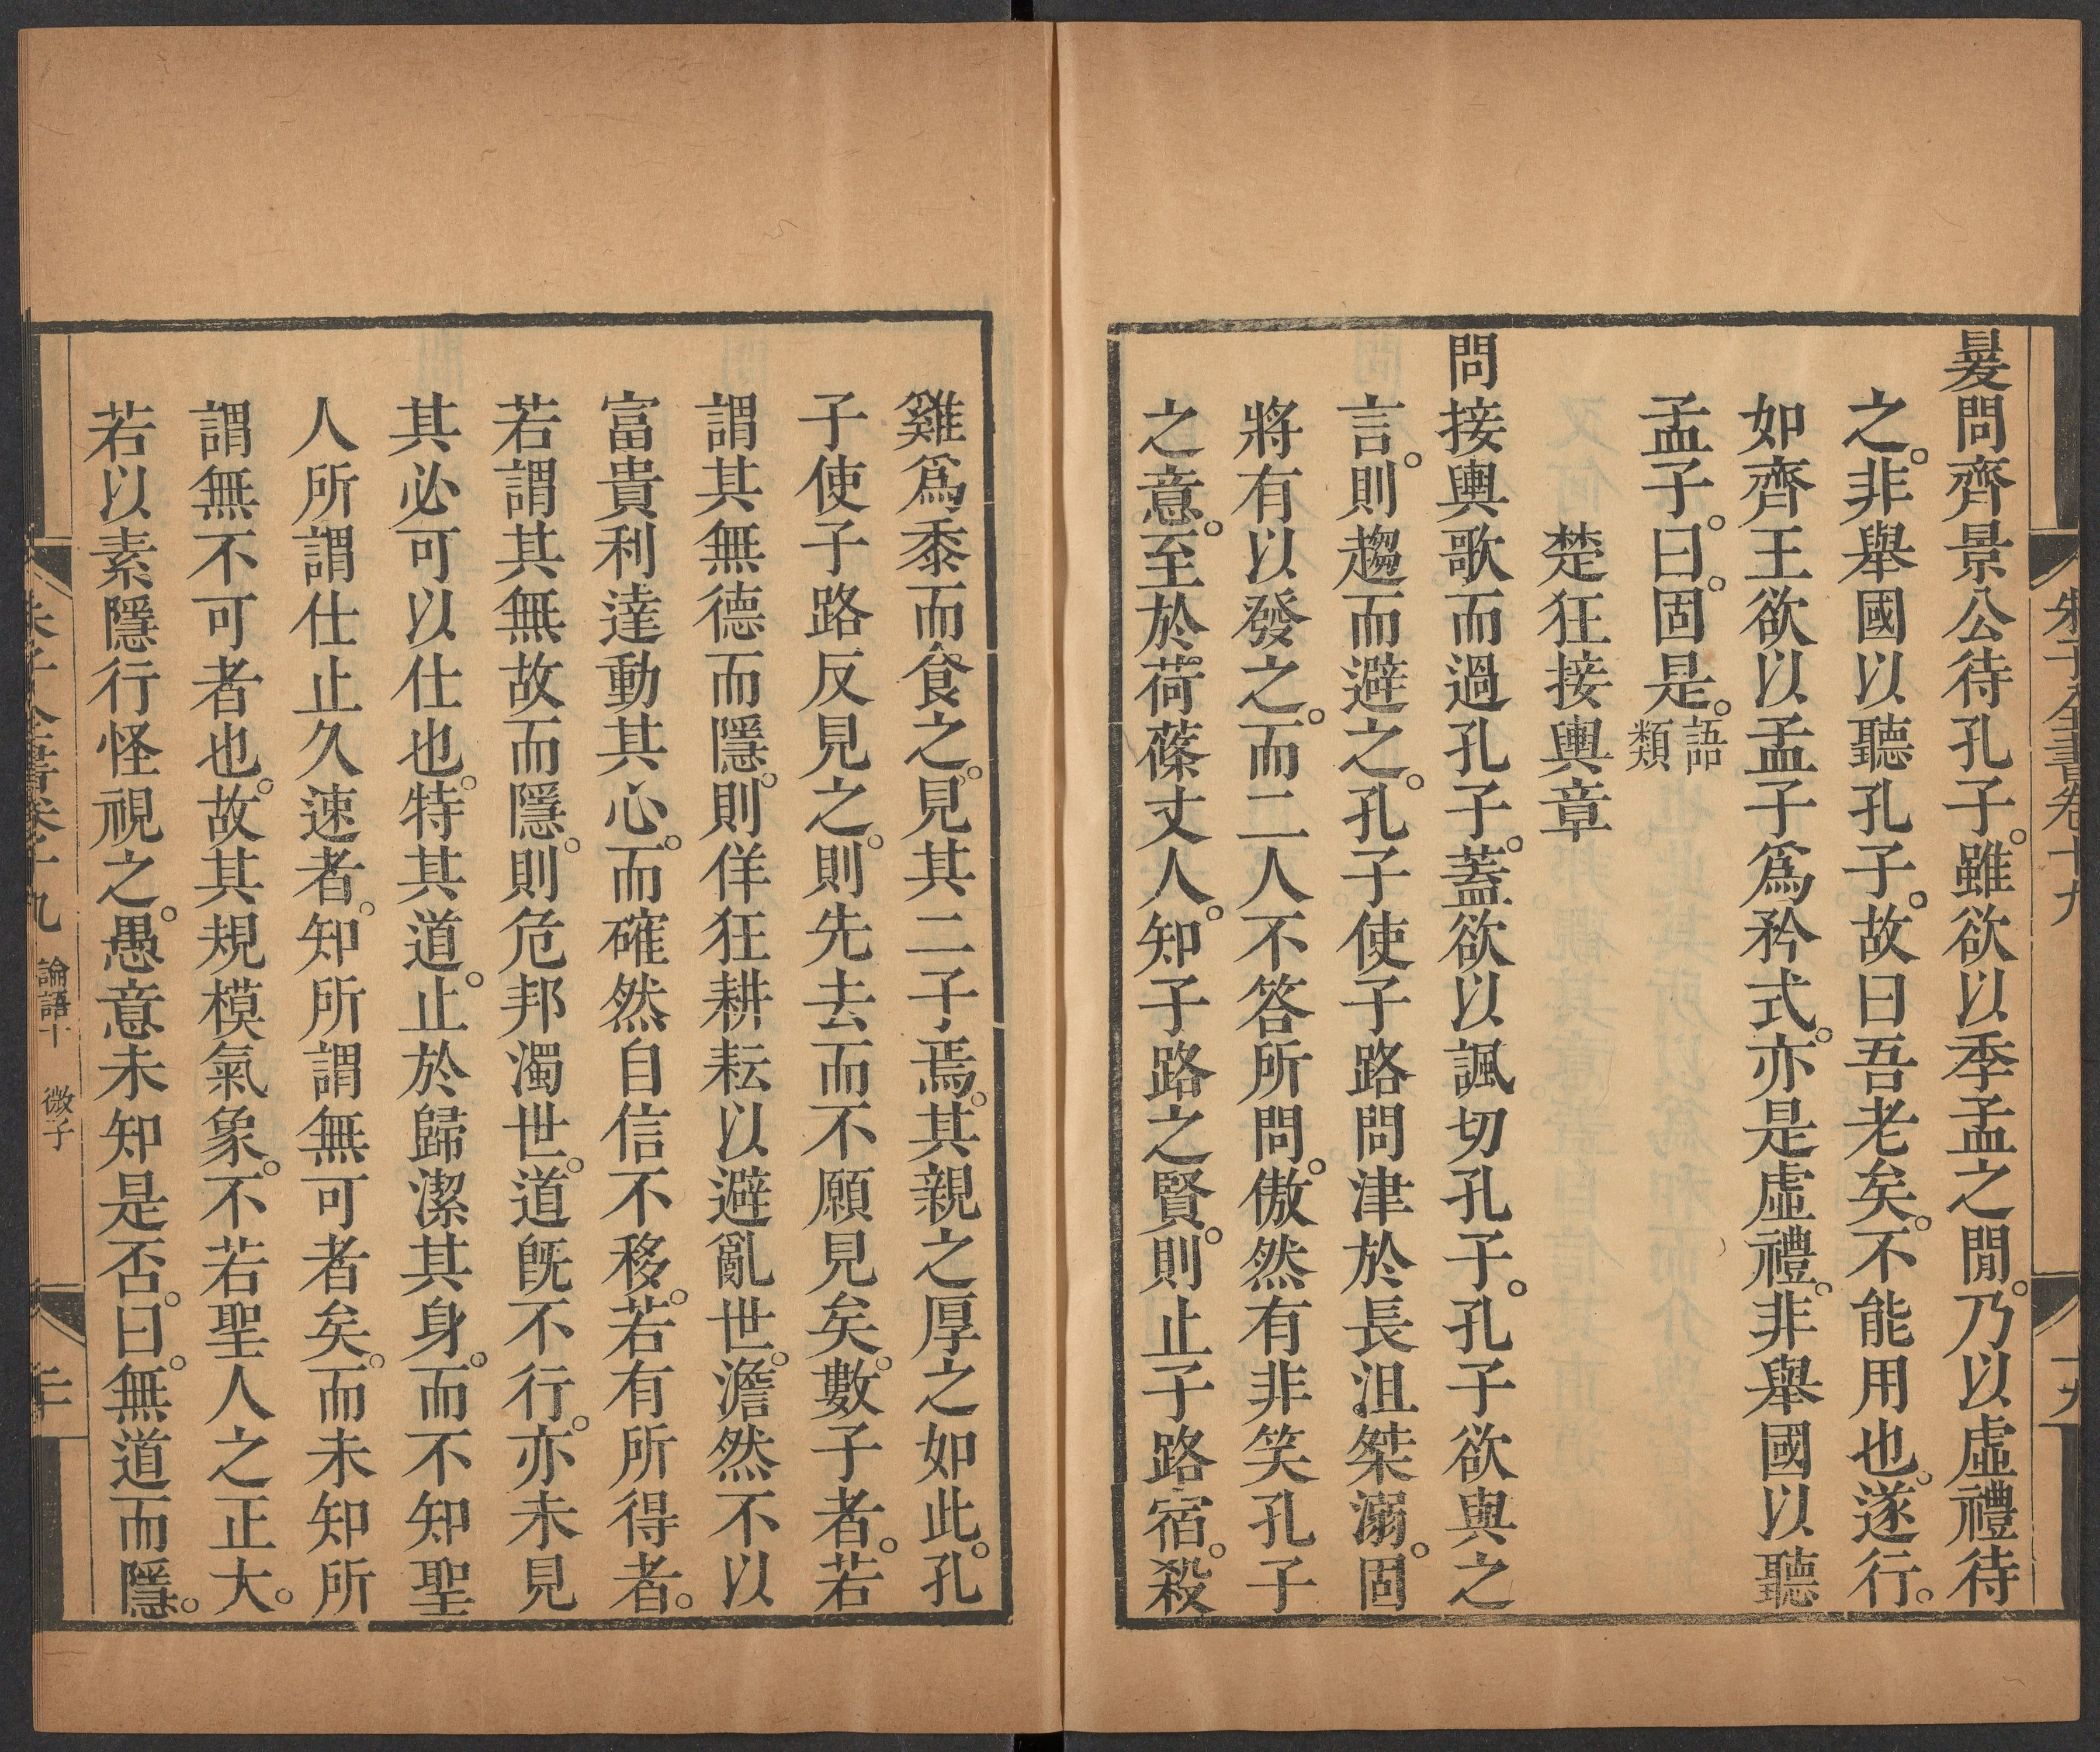 朱子全書卷十九
十九
㬊問齊景公待孔子。雖欲以季孟之閒。乃以虛禮待
之。非舉國以聽孔子。故曰吾老矣。不能用也。遂行。
如齊王欲以孟子爲矜式。亦是虛禮。非舉國以聽
孟子。曰。固是。語類
楚狂接輿章
問接輿歌而過孔子。蓋欲以諷切孔子。孔子欲與之
言。則趨而避之。孔子使子路問津於長沮桀溺。固
將有以發之。而二人不答所問。傲然有非笑孔子
之意。至於荷蓧丈人。知子路之賢。則止子路宿。殺
雞爲黍而食之。見其二子焉。其親之厚之如此。孔
子使子路反見之。則先去而不願見矣。數子者。若
謂其無德而隱。則佯狂耕耘以避亂世。澹然不以
富貴利達動其心。而確然自信不移。若有所得者。
若謂其無故而隱。則危邦濁世。道旣不行。亦未見
其必可以仕也。特其道。止於歸潔其身。而不知聖
人所謂仕止久速者。知所謂無可者矣。而未知所
謂無不可者也。故其規模氣象。不若聖人之正大。
若以素隱行怪視之。愚意未知是否。曰。無道而隱。
朱子全書卷十九 論語十 微子
二十